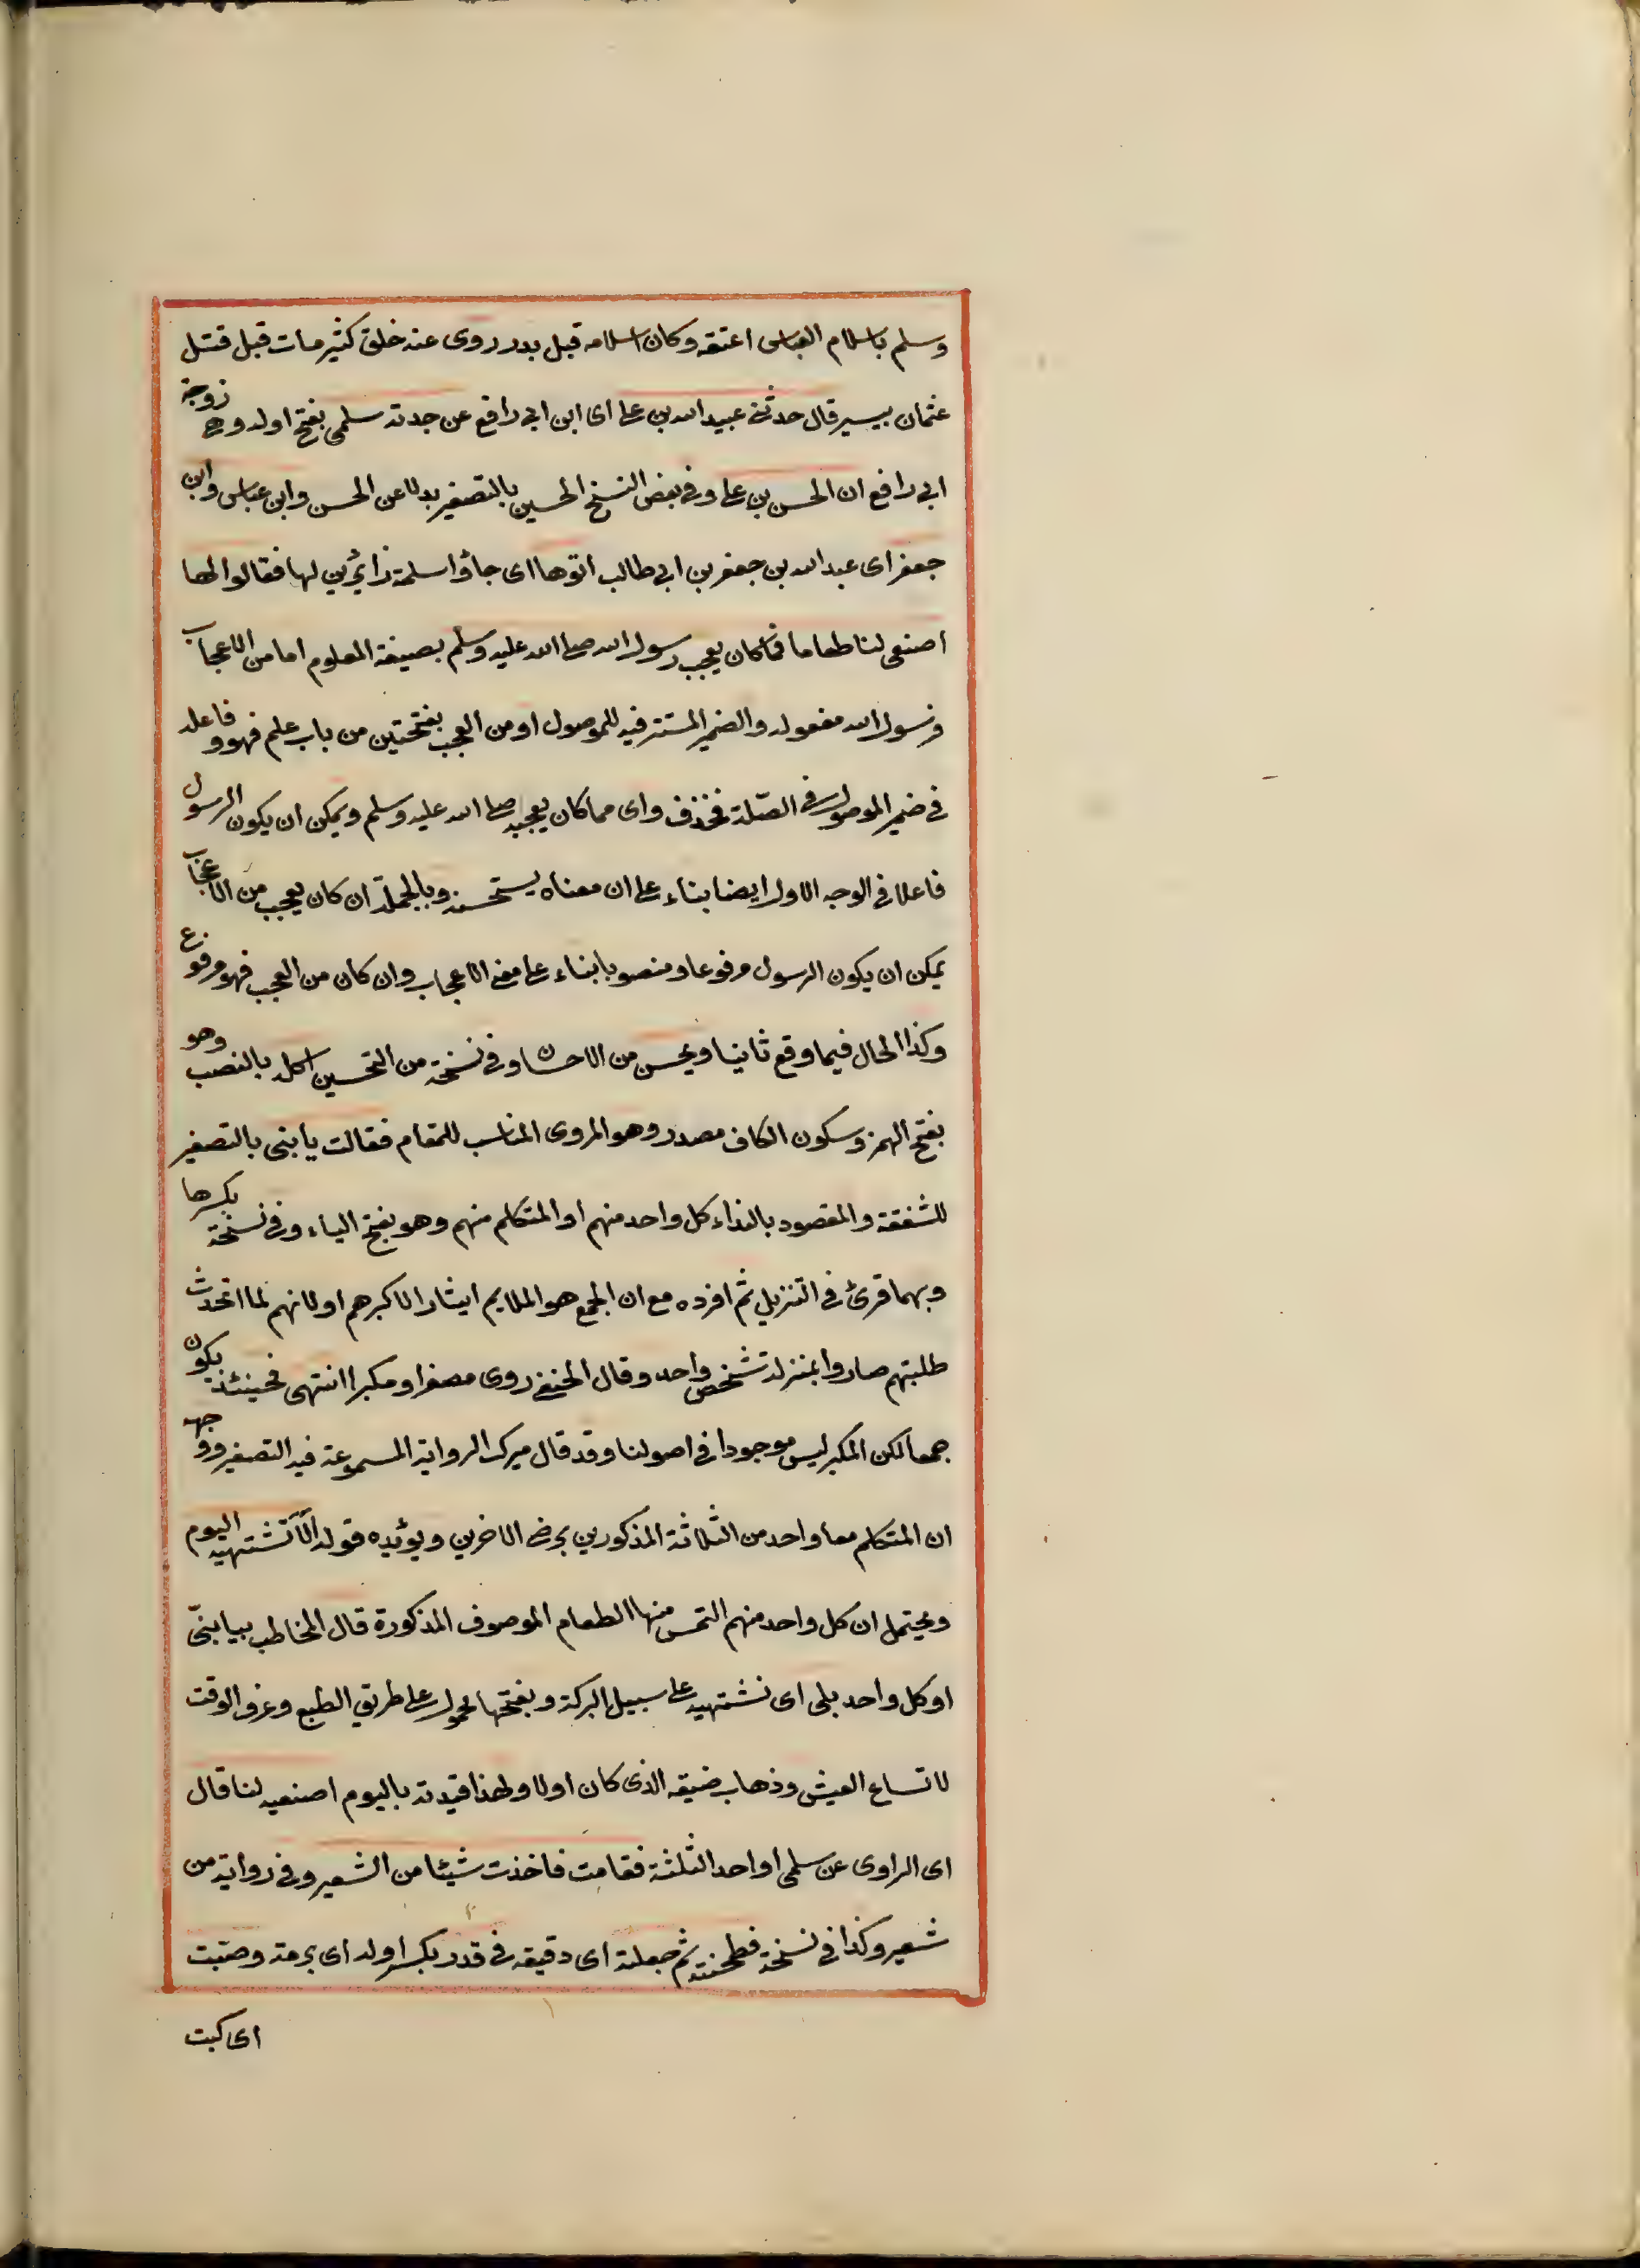 وسلم باسلام العباس اعتقه وكان اسلامه قبل بدر روى عنه خلق كثير مات قبل قتل
عثمان بيسير قال حدثني عبيد الله بن علي اى ابن ابي رافع عن جدته سلمى بفتح اوله وهي زوجة
ابي رافع ان الحسن بن علي وفي بعض النسخ الحسين بالتصغير بدلا عن الحسن وابن عباس وابن
جعفر اى عبد الله بن جعفر بن ابي طالب اتوها اى جاؤا سلمة زائرين لها فقالوا لها
اصنعى لنا طعاما مما كان يعجب رسول الله صلى الله عليه وسلم بصيغة المعلوم اما من الاعجاب
فرسول الله مفعوله والضمير المستتر فيه للموصول او من العجب بفتحتين من باب علم فهو وفاعله
في ضمير الموصول في الصلة فحذف واى مما كان يعجبه صلى الله عليه وسلم ويمكن ان يكون الرسول
فاعلا في الوجه الاول ايضا بناء على ان معناه يستحسنه وبالجملة ان كان يعجب من الاعجاب
يمكن ان يكون الرسول مرفوعا ومنصوبا بناء على معنى الاعجاب وان كان من العجب فهو مرفوع
وكذا الحال فيما وقع ثانيا ويحسن من الاحسان وفي نسخة من التحسين اكله بالنصب وهو
بفتح الهمز وسكون الكاف مصدر وهو المروى المناسب للمقام فقالت يا بنى بالتصغير
للشفقة والمقصود بالنداء كل واحد منهم او المتكلم منهم وهو بفتح الياء وفي نسخة بكسرها
وبهما قرئ في التنزيل ثم افرده مع ان الجمع هو الملايم ايثارا لاكبرهم او لانهم لما اتحدث
طلبتهم صاروا بمنزلة شخص واحد وقال الحنفي روى مصغرا ومكبرا انتهى فحينئذ يكون
جمعا لكن المكبر ليس موجودا في اصولنا وقد قال ميرك الرواية المسموعة فيه التصغير ووجهه
ان المتكلم معا واحد من الثلاثة المذكورين برضى الاخرين ويؤيده قوله لا تشتهيه اليوم
ويحتمل ان كل واحد منهم التمس منها الطعام الموصوف المذكورة قال المخاطب بيا بنىّ
او كل واحد بلى اى نشتهيه على سبيل البركة وبفتحها محمول على طريق الطبع وعرف الوقت
لاتساع العيش وذهاب ضيقه الذى كان اولا ولهذا قيدته باليوم اصنعيه لنا قال
اى الراوى عن سلمى او احد الثلثة فقامت فاخذت شيئا من الشعير وفي رواية من
شعير وكذا في نسخة فطحنته ثم جعلته اى دقيقه في قدر بكسر اوله اى برمة وصبت
اى كبت